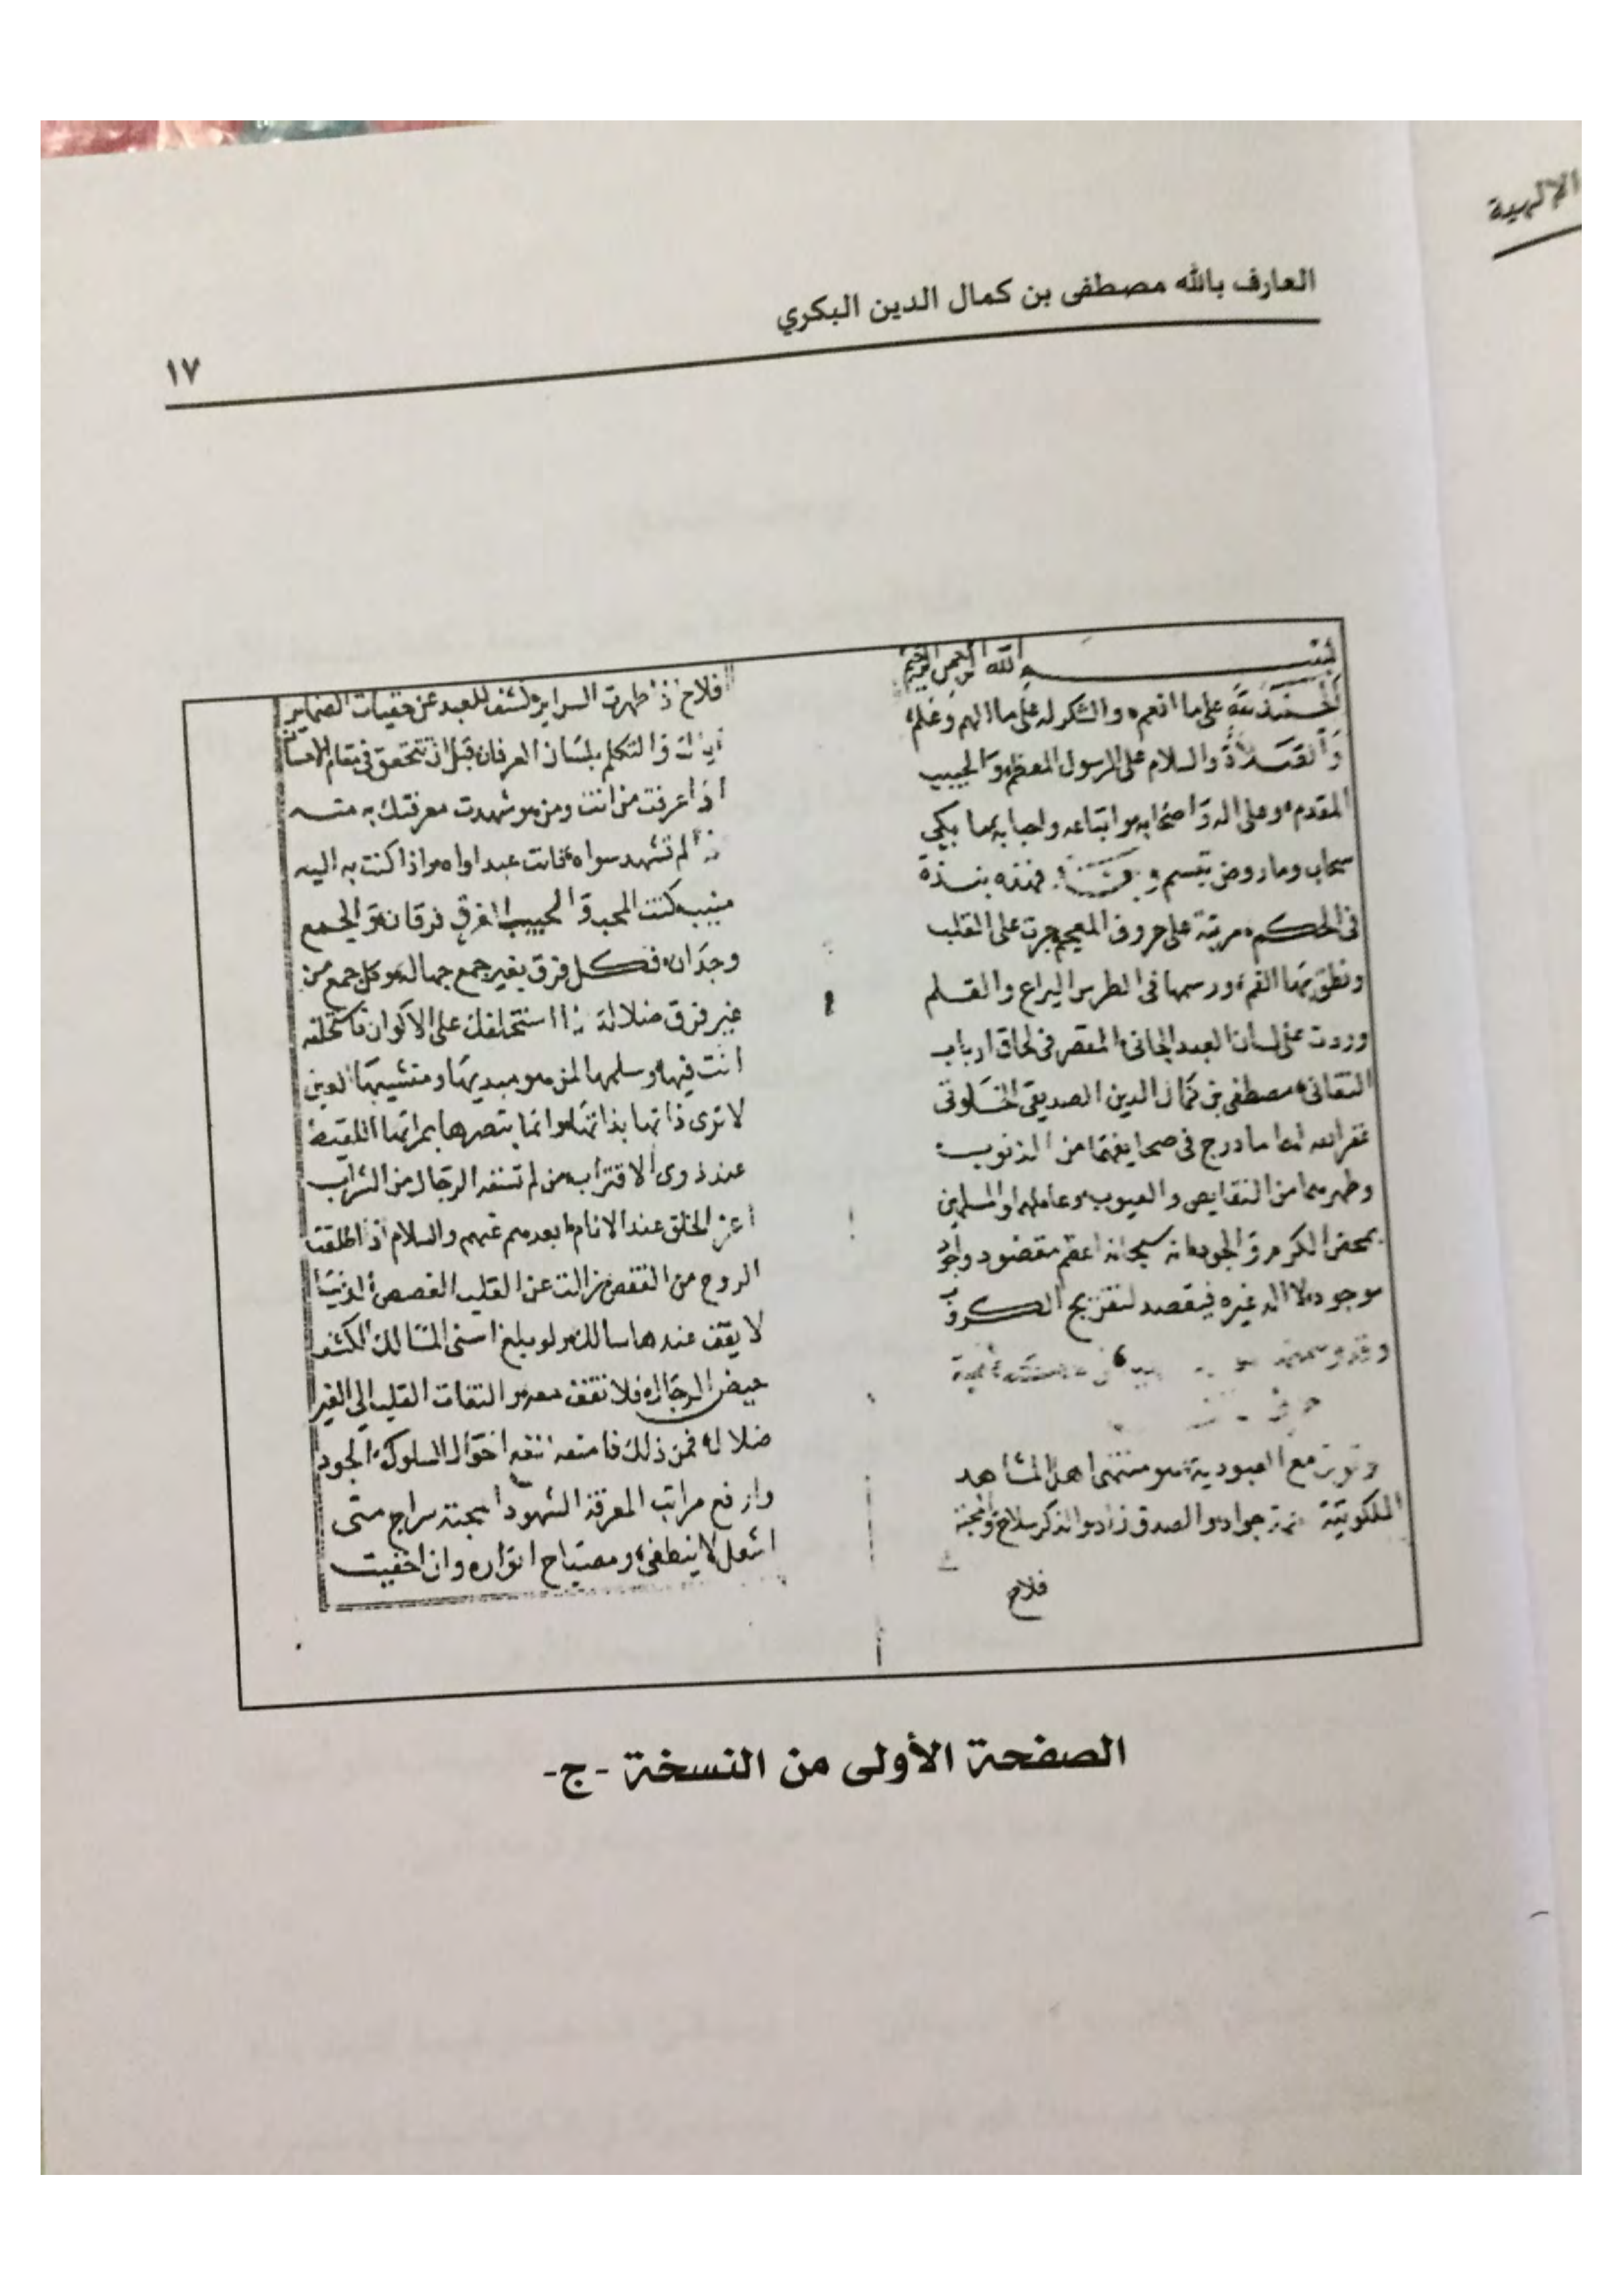 الإلهية
العارف بالله مصطفى بن كمال الدين البكري
١٧
بسم الله الرحمن الرحيم
الحمد لله على ما انعم والشكر له على ما الهم وعلم
والصلاة والسلام على الرسول المعظم والحبيب
المقدم وعلى اله واصحابه واتباعه واحبابه ما بكى
سحاب وما روض تبسم فهذه نبذة
فى الحكم مرتبة على حروف المعجم جرت على القلب
ونطق بها الفم ورسمها فى الطرس اليراع والقلم
وردت على لسان العبد الجانى المقصر فى لحاق ارباب
التفانى مصطفى بن كمال الدين الصديقى الخلوتى
غفر الله لهما ما درج فى صحايفهما من الذنوب
وطهرهما من النقايص والعيوب وعاملهما والمسلمين
بمحض الكرم والجود انه سبحانه اعظم مقصود واجود
موجود لا اله غيره فيقصد لتفريج الكروب
مع العبودية هو منتهى اهل المشاهد
الملكوتية جواد والصدق زاد والذكر سلاح والمحبة
فلاح
فلاح اذ ظهرت السراير وكشف للعبد عن خفيات الضماير
اياك والتكلم بلسان العرفان قبل ان تتحقق فى مقام الاحسان
اذا عرفت من انت ومن هو شهدت معرفتك به منه
لم تشهد سواه فانت عبد اواه واذا كنت به اليه
منيب كنت المحب والحبيب الفرق فرقان والجمع
وجدان فكل فرق بغير جمع جهاله وكل جمع من
غير فرق ضلالة اذا استخلفك على الاكوان فاستخلفه
انت فيها وسلمها لمن هو مبديها ومنشيها العين
لا ترى ذاتها بذاتها وانما تبصرها بمراتها اللقيط
عند ذوى الاقتراب من لم تسقه الرجال من الشراب
اعز الخلق عند الانام ابعدهم عنهم والسلام اذا اطلقت
الروح من القفص زالت عن القلب الغصص الدنيا
لا يقف عندها سالك ولو بلغ اسنى المسالك الكشف
حيض الرجال فلا تقف معه والتفات القلب الى الغير
ضلاله فمن ذلك فامنعه انفع احوال السلوك الجود
وارفع مراتب المعرفة الشهود المحبة سراج متى
اشعل لا ينطفى ومصباح انواره وان اخفيت
الصفحة الأولى من النسخة -ج-